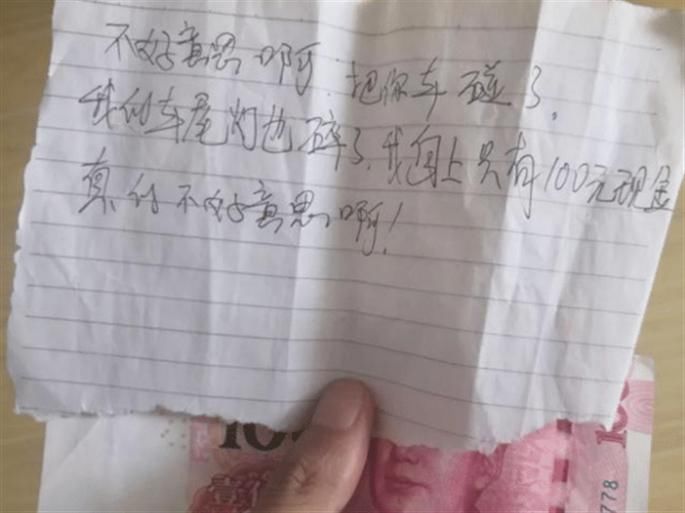 不好意思啊.把你车碰了.
我的车尾灯也碎了.我身上只有100元现金
真的不好意思啊！
100
壹
10
778